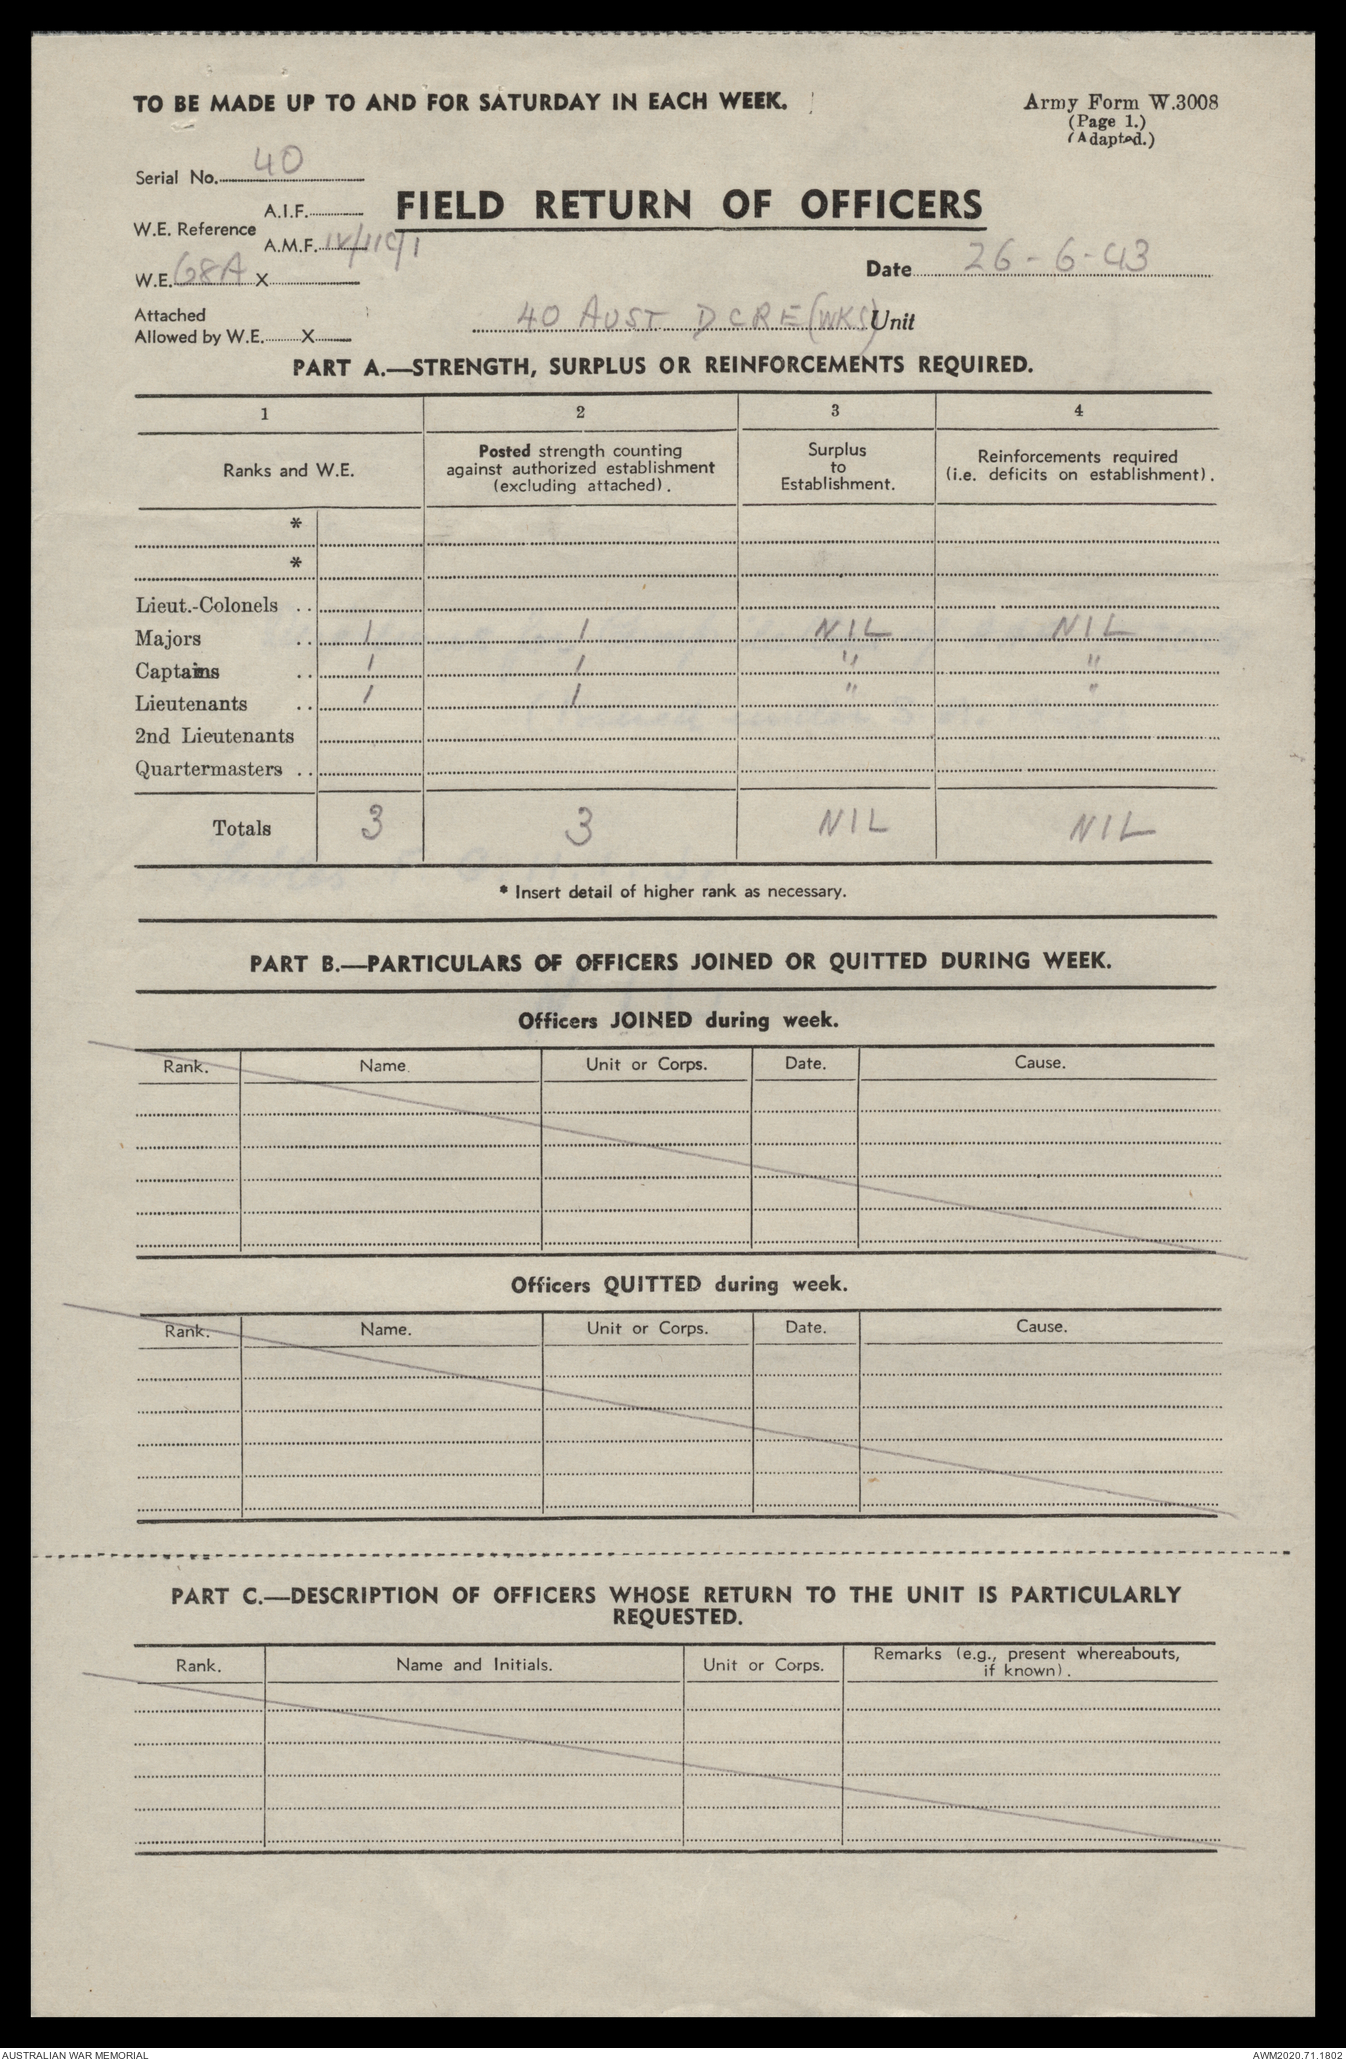 TO BE MADE UP TO AND FOR SATURDAY IN EACH WEEK.
Army Form W.3008
(Page 1.)
(Adapted.)
Serial No. 40
FIELD RETURN OF OFFICERS
W.E. Reference
A.I.F.
A.M.F. IV/11C/1
W.E. G8A X
Date 26-6-43
Attached
Allowed by W.E. X
40 AUST DCRE (WKS) Unit
PART A.—STRENGTH, SURPLUS OR REINFORCEMENTS REQUIRED.
1 2 3 4
Ranks and W.E.
Posted strength counting
against authorized establishment
(excluding attached).
Surplus
to
Establishment.
Reinforcements required
(i.e. deficits on establishment).
*
*
Lieut.-Colonels ..
Majors .. 1 1 NIL NIL
Captains .. 1 1 " "
Lieutenants .. 1 1 " "
2nd Lieutenants
Quartermasters ..
Totals 3 3 NIL NIL
* Insert detail of higher rank as necessary.
PART B.—PARTICULARS OF OFFICERS JOINED OR QUITTED DURING WEEK.
Officers JOINED during week.
Rank. Name. Unit or Corps. Date. Cause.
Officers QUITTED during week.
Rank. Name. Unit or Corps. Date. Cause.
PART C.—DESCRIPTION OF OFFICERS WHOSE RETURN TO THE UNIT IS PARTICULARLY
REQUESTED.
Rank. Name and Initials. Unit or Corps. Remarks (e.g., present whereabouts,
if known).
AUSTRALIAN WAR MEMORIAL
AWM2020.71.1802